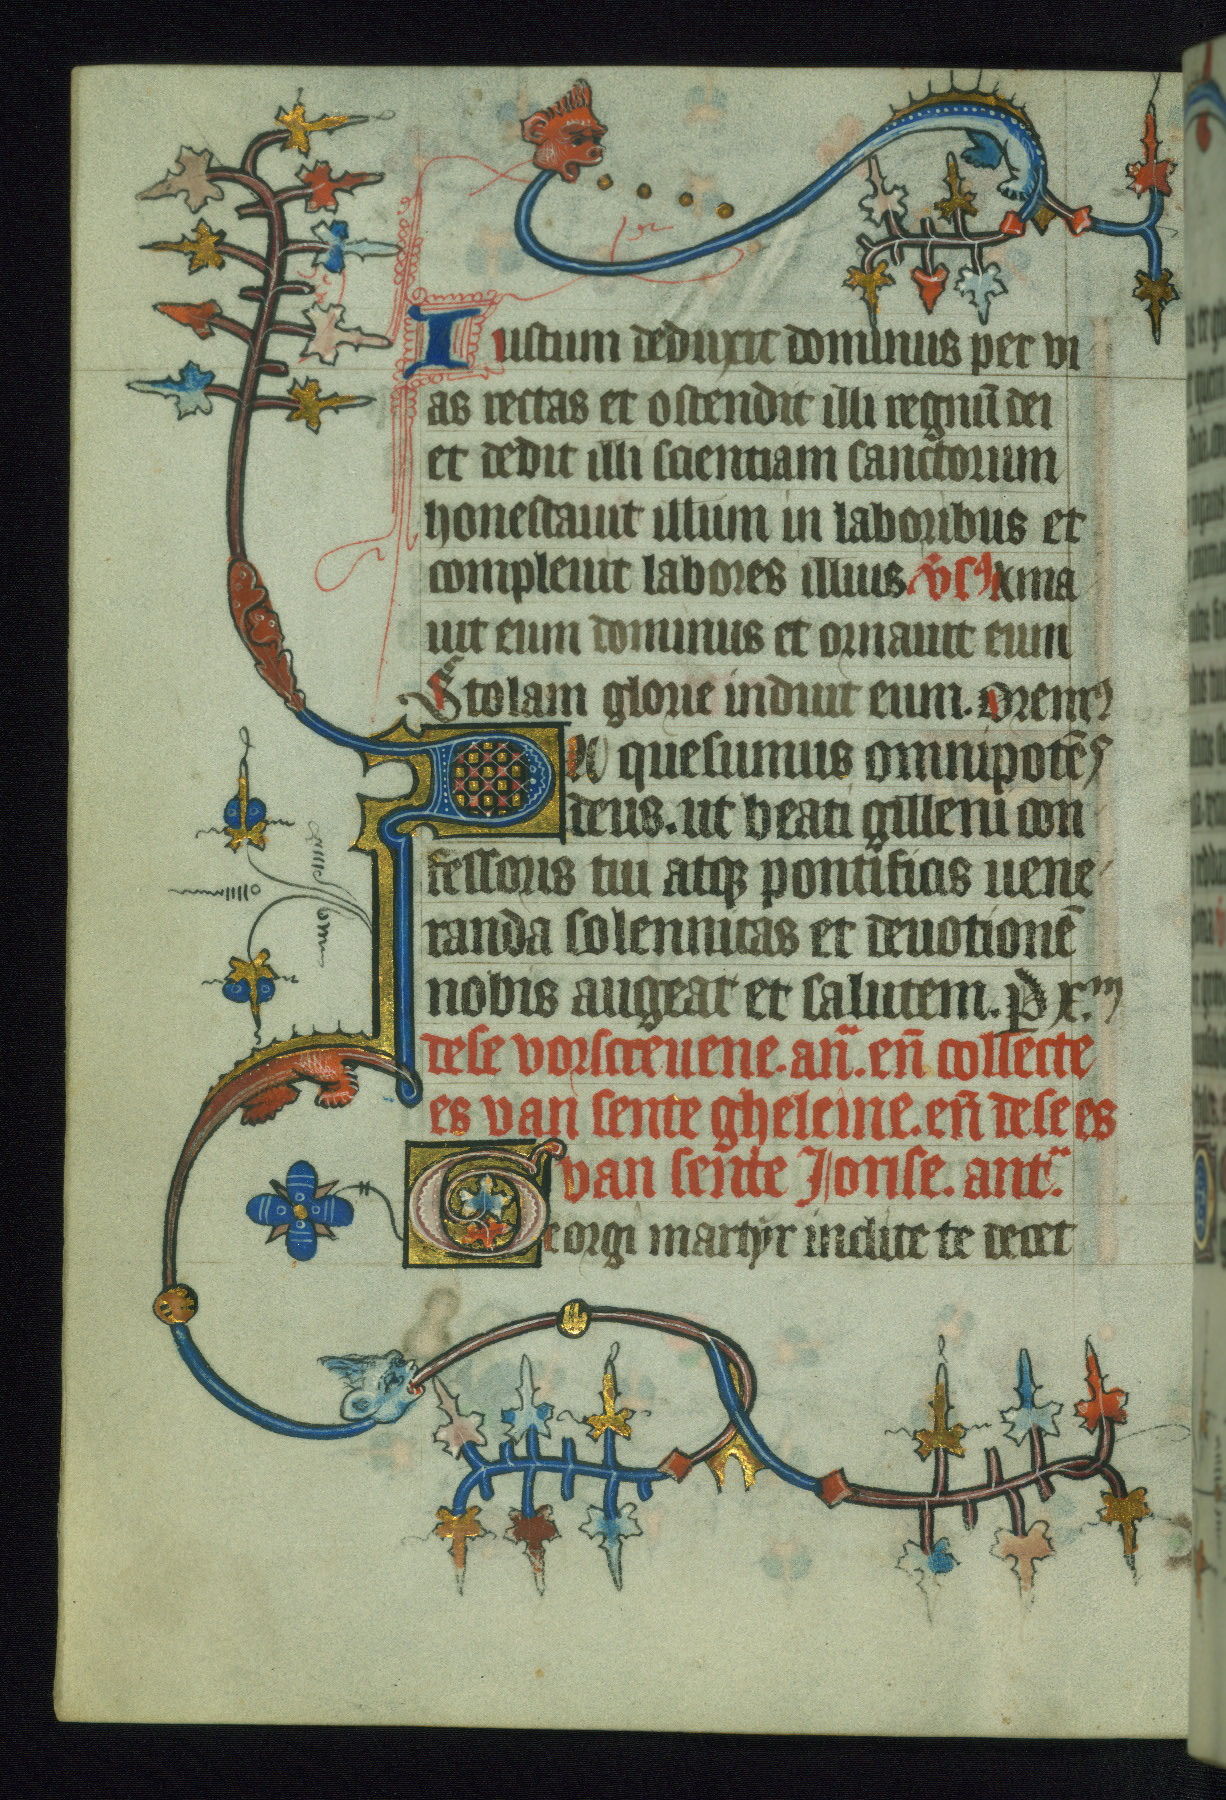 Iustum deduxit dominus per vi
as rectas et ostendit illi regnū dei
et dedit illi scientiam sanctorum
honestauit illum in laboribus et
compleuit labores illius. Ama
uit eum dominus et ornauit eum
Stolam glorie induit eum. Oremꝰ
quesumus omnipotēs
deus. ut beati gilleni con
fessoris tui atqꝫ pontificis uene
randa solennitas et deuotionē
nobis augeat et salutem. p xͫ
dese vorscreuene. an̄. en̄ collecte
es van sente gheleine. en̄ dese es
van sente Jorise. ant.
Georgi martyr inclite te decet